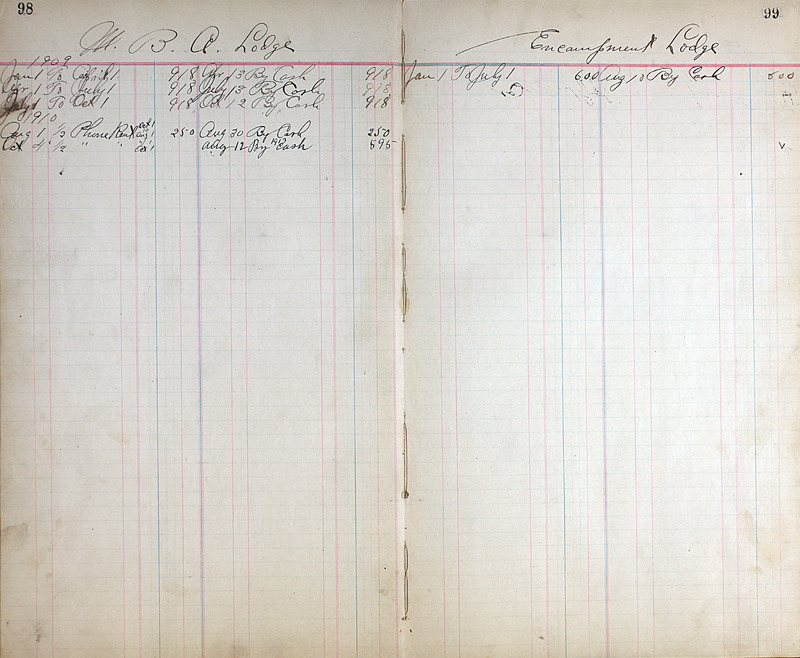 98
M. B. A. Lodge
1909
Jan 1 To April 1 918 Apr 13 By Cash 918
Apr 1 To July 1 918 July 13 By Cash 918
July 1 To Oct 1 918 Oct 12 By Cash 918
1910
Oct 1
Aug 1 1/2 Phone Rent Aug 1 250 Aug 30 By Cash 250
Oct 4 1/2 " " Oct 1 Aug 12 By Cash 595
99
Encampment Lodge
Jan 1 To July 1 600 Aug 10 By Cash 600